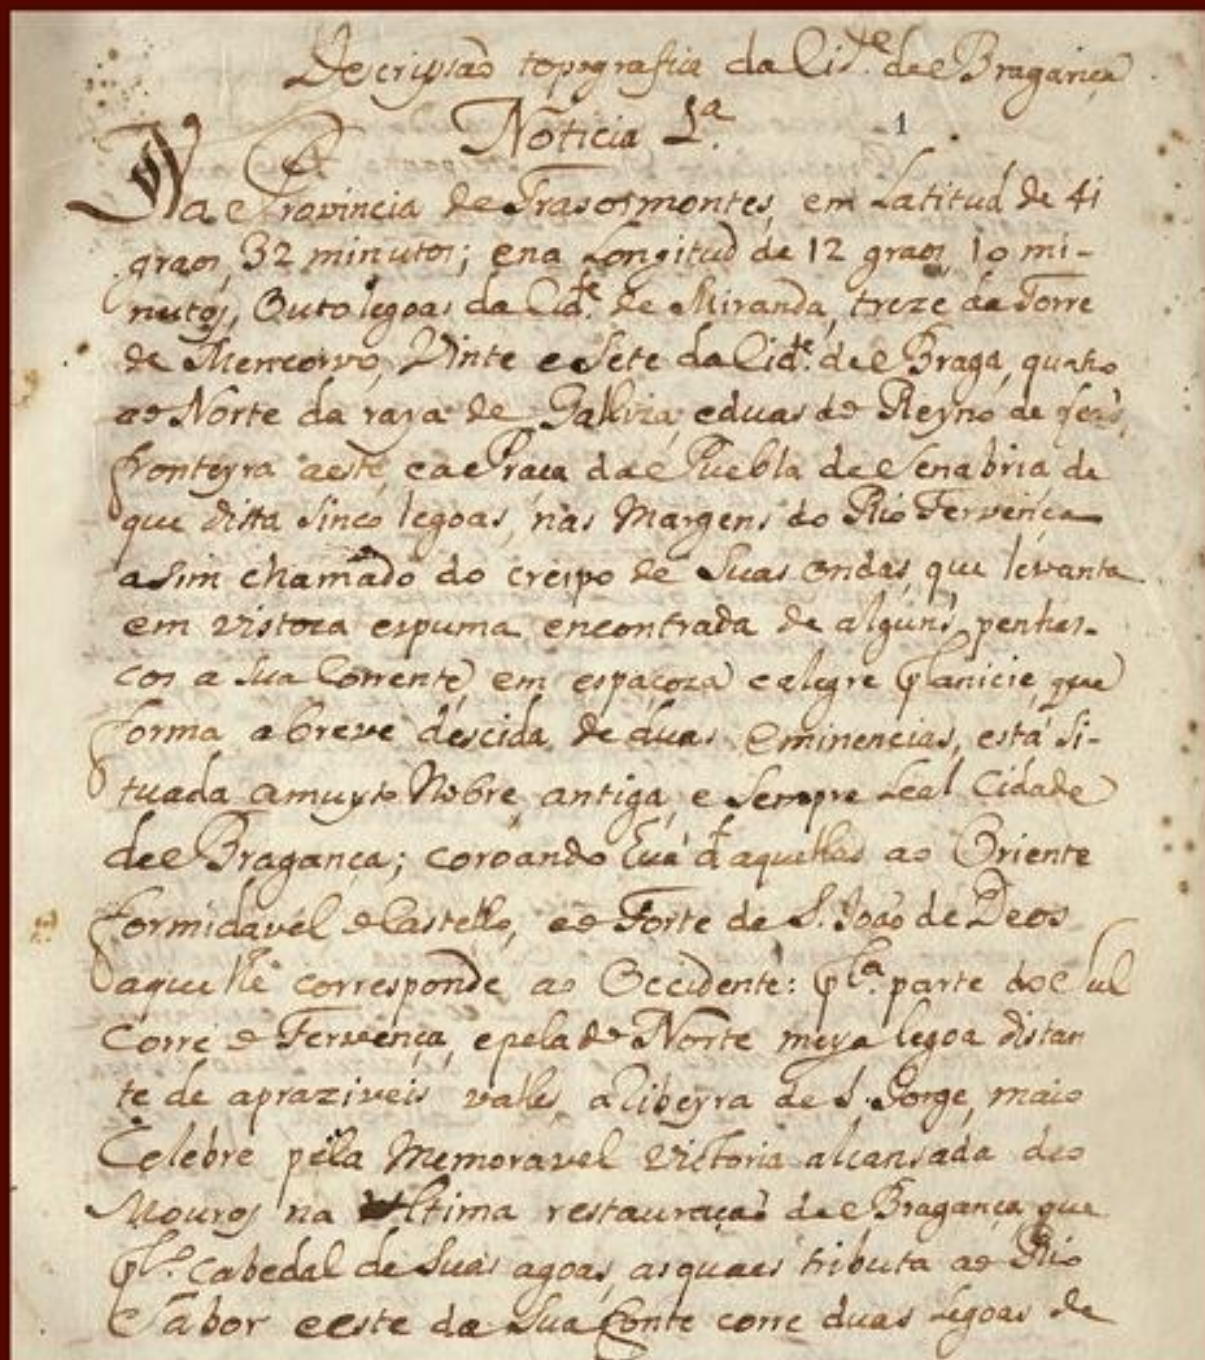 Descripsaõ topografica da Cid.e de Bragança
Noticia 1.ª 1
Na Provincia de Trasosmontes, em Latitud de 41
graos, 32 minutos; e na Longitud de 12 graos, 10 mi-
nutos, Outo legoas da Cid.e de Miranda, treze da Torre
de Mencorvo, Vinte e Sete da Cid.e de Braga, quatro
ao Norte da raya de Galliza, e duas do Reyno de
fronteyra a este, e a Praça da Puebla de Senabria de
que dista sinco legoas, nas Margens do Rio Fervença
asim chamado do crespo de Suas ondas, que levanta
em vistoza espuma encontrada de alguns penhas-
cos a sua Corrente, em espaçoza e alegre planicie, que
forma a breve descida de duas eminencias, está si-
tuada a muyto Nobre, antiga, e Sempre Leal Cidade
de Bragança; coroando huã d'aquellas ao Oriente
formidavel o Castello, e o Forte de S. João de Deos
aquelle corresponde ao Occidente: pla. parte do Sul
Corre o Fervença, e pela do Norte meya legoa distan
te de apraziveis valles, a Ribeyra de S. Jorge, mais
Celebre pela Memoravel Victoria alcansada dos
Mouros na Ultima restauraçaõ de Bragança, que
plo. Cabedal de Suas agoas, as quaes tributa ao Rio
Sabor e este da Sua fonte corre duas Legoas de